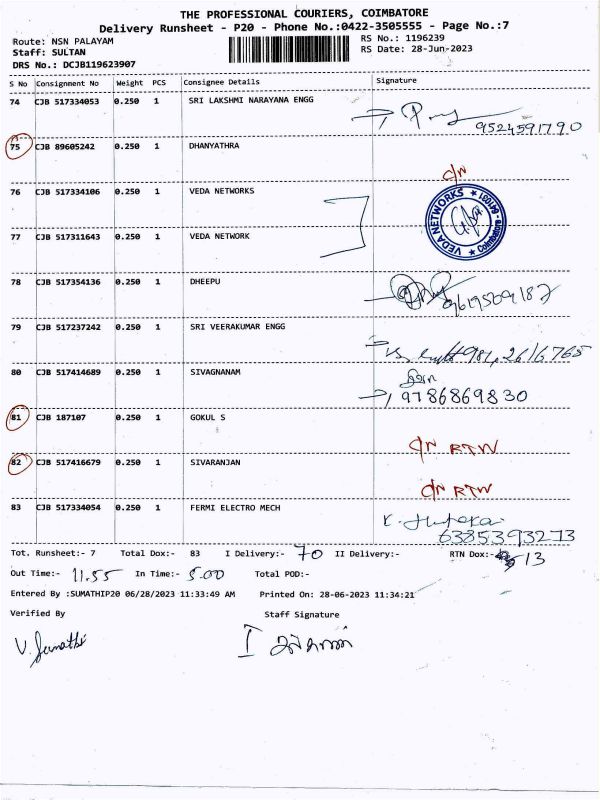 THE PROFESSIONAL COURIERS, COIMBATORE
Delivery Runsheet - P20 - Phone No.:0422-3505555 - Page No.:7
Route: NSN PALAYAM RS No.: 1196239
Staff: SULTAN RS Date: 28-Jun-2023
DRS No.: DCJB119623907
S No Consignment No Weight PCS Consignee Details Signature
74 CJB 517334053 0.250 1 SRI LAKSHMI NARAYANA ENGG
9524591790
75 CJB 89605242 0.250 1 DHANYATHRA
C/N
76 CJB 517334106 0.250 1 VEDA NETWORKS
VEDA NETWORKS ★ Coimbatore - 641031 ★
77 CJB 517311643 0.250 1 VEDA NETWORK
78 CJB 517354136 0.250 1 DHEEPU
79 CJB 517237242 0.250 1 SRI VEERAKUMAR ENGG
80 CJB 517414689 0.250 1 SIVAGNANAM
9786869830
81 CJB 187107 0.250 1 GOKUL S
C/N RTW
82 CJB 517416679 0.250 1 SIVARANJAN
C/N RTW
83 CJB 517334054 0.250 1 FERMI ELECTRO MECH
6385393273
Tot. Runsheet:- 7 Total Dox:- 83 I Delivery:- 70 II Delivery:- RTN Dox:- 13
Out Time:- 11.55 In Time:- 5.00 Total POD:-
Entered By :SUMATHIP20 06/28/2023 11:33:49 AM Printed On: 28-06-2023 11:34:21
Verified By Staff Signature
V. Sumathi